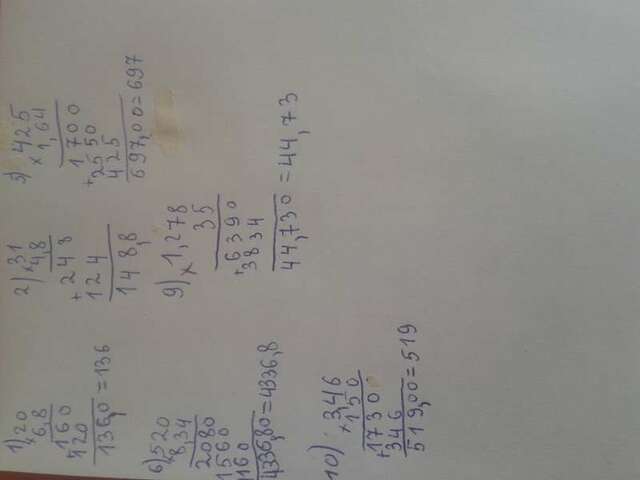 1) 20
× 6,8
160
+ 120
136,0 = 136
2) × 31
4,8
+ 248
124
148,8
5) 425
× 1,64
1700
+ 2550
425
697,00 = 697
6) 520
× 8,34
2080
1560
160
4336,80 = 4336,8
9) × 1,278
35
+ 6390
3834
44,730 = 44,73
10) 346
× 1,50
1730
+ 346
519,00 = 519